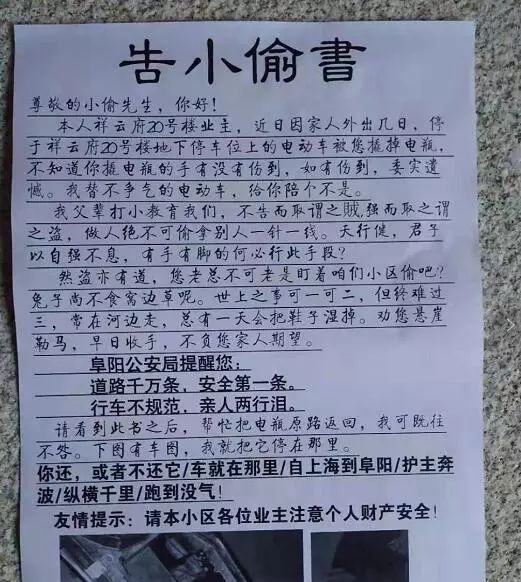 告小偷書
尊敬的小偷先生，你好！
本人祥云府20号楼业主，近日因家人外出几日，停
于祥云府20号楼地下停车位上的电动车被您撬掉电瓶，
不知道你撬电瓶的手有没有伤到，如有伤到，委实遗
憾。我替不争气的电动车，给你陪个不是。
我父辈打小教育我们，不告而取谓之贼，强而取之谓
之盗，做人绝不可偷拿别人一针一线。天行健，君子
以自强不息，有手有脚的何必行此手段？
然盗亦有道，您老总不可老是盯着咱们小区偷吧？
兔子尚不食窝边草呢。世上之事可一可二，但终难过
三，常在河边走，总有一天会把鞋子湿掉。劝您悬崖
勒马，早日收手，不负您家人期望。
阜阳公安局提醒您：
道路千万条，安全第一条。
行车不规范，亲人两行泪。
请看到此书之后，帮忙把电瓶原路返回，我可既往
不咎。下图有车图，我就把它停在那里。
你还，或者不还它/车就在那里/自上海到阜阳/护主奔
波/纵横千里/跑到没气！
友情提示：请本小区各位业主注意个人财产安全！